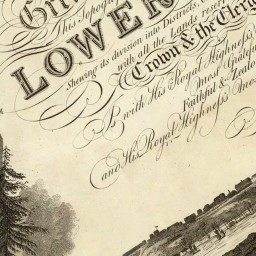 This Topogra
LOWER
Shewing its division into Districts,
with all the Lands reserv
Crown & the Clerg
Is with His Royal Highness's
most Gratefu
Faithful &
and His Royal Highness's